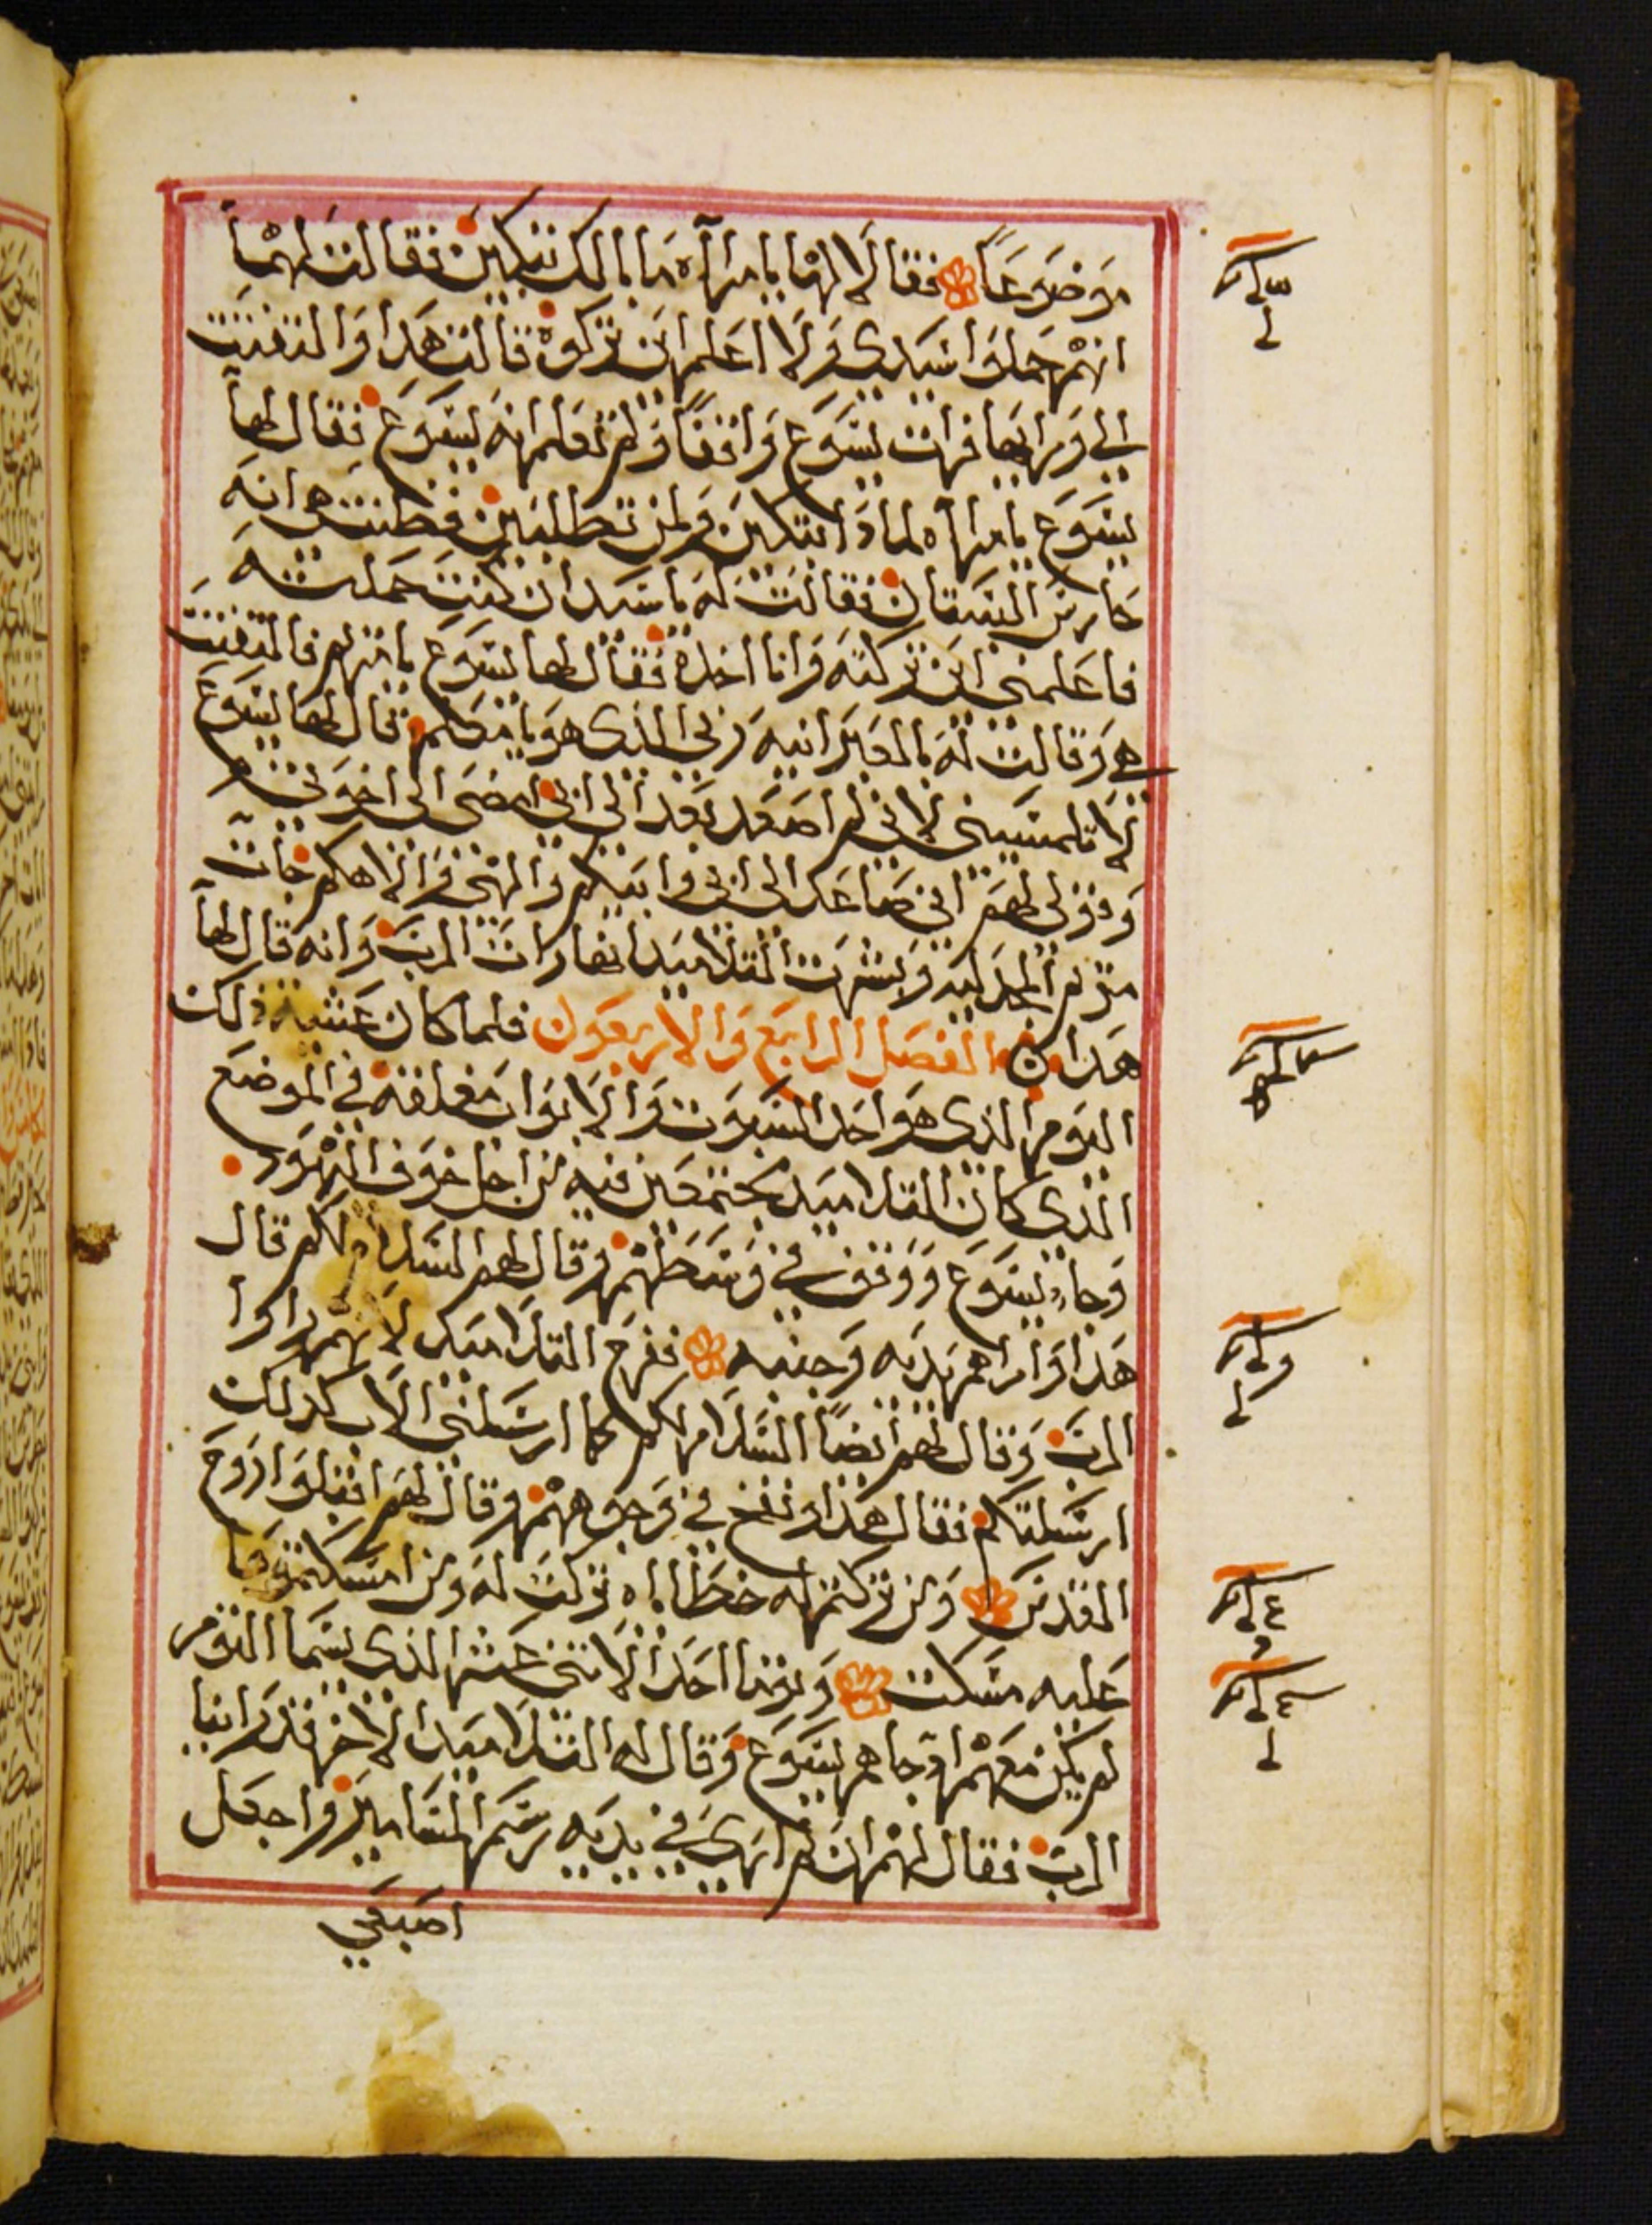 موضوعاً فقالا لها يا امرآه ما بالك تبكين فقالت لهما
انهم حملوا سيدي ولا اعلم اين تركوه قالت هدا والتفتت
الي ورايها فرات يسوع واقفاً ولم تعلم انه يسوع فقال لها
يسوع يا امرآه لمادا تبكين ولمن تطلبين فظنت هي انه
حارس البستان فقالت له يا سيد ان كنت حملته
فاعلمني اين تركته وانا اخده فقال لها يسوع يا مريم فالتفتت
هي وقالت له بالعبرانيه ربي الذي هو يا معلم قال لها يسوع
لا تلمسيني لاني لم اصعد بعد الي ابي امضي الي اخوتي
وقولي لهم اني صاعد الى ابي وابيكم والهي والاهكم فجات
مريم المجدليه وبشرت التلاميد انها رات الرب وانه قال لها
هدا الفصل الرابع والاربعون فلما كان عشية ذلك
اليوم الذي هو احد السبوت والابواب مغلقة في الموضع
الذي كان التلاميد مجتمعين فيه من اجل خوف اليهود
وجا يسوع ووقف في وسطهم وقال لهم السلام لكم قال
هذا واراهم يديه وجنبه ففرح التلاميد لانهم راوا
الرب وقال لهم ايضاً السلام لكم كما ارسلني الاب كدلك
ارسلتكم فقال هذا ونفخ في وجوههم وقال لهم اقبلوا اروح
القدس من تركتم له خطاياه تركت له ومن امسكتموها
عليه مسكت وتوما احد الاتني عشر الذي يسما التوم
لم يكن معهم اد جاهم يسوع وقال له التلاميد الاخر قد راينا
الرب فقال لهم ان لم اري في يديه رسم المسامير واجعل
اصبعي